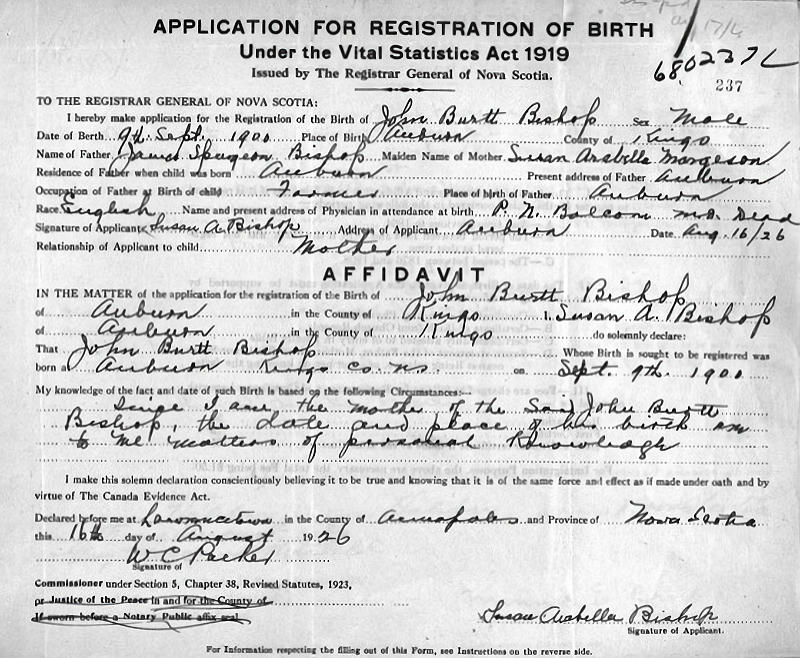 APPLICATION FOR REGISTRATION OF BIRTH
Under the Vital Statistics Act 1919
Issued by The Registrar General of Nova Scotia.
6802237L
237
TO THE REGISTRAR GENERAL OF NOVA SCOTIA:
I hereby make application for the Registration of the Birth of John Burtt Bishop Sex Male
Date of Berth 9th Sept. 1900 Place of Birth Auburn County of Kings
Name of Father James Spurgeon Bishop Maiden Name of Mother Susan Arabella Margeson
Residence of Father when child was born Auburn Present address of Father Auburn
Occupation of Father at Birth of child Farmer Place of birth of Father Auburn
Race English Name and present address of Physician in attendance at birth P. N. Balcom M.D. Dead
Signature of Applicant Susan A Bishop Address of Applicant Auburn Date Aug. 16/26
Relationship of Applicant to child Mother
AFFIDAVIT
IN THE MATTER of the application for the registration of the Birth of John Burtt Bishop
of Auburn in the County of Kings I, Susan A. Bishop
of Auburn in the County of Kings do solemnly declare:
That John Burtt Bishop Whose Birth is sought to be registered was
born at Auburn Kings Co. NS. on Sept. 9th. 1900
My knowledge of the fact and date of such Birth is based on the following Circumstances:—
Since I am the mother of the Said John Burtt
Bishop, the date and place of his birth are
to me matters of personal knowledge
I make this solemn declaration conscientiously believing it to be true and knowing that it is of the same force and effect as if made under oath and by
virtue of The Canada Evidence Act.
Declared before me at Lawrencetown in the County of Annapolis and Province of Nova Scotia
this 16th day of August 1926
W C Parker
Signature of
Commissioner under Section 5, Chapter 38, Revised Statutes, 1923,
or Justice of the Peace in and for the County of
If sworn before a Notary Public affix seal
Susan Arabella Bishop
Signature of Applicant.
For Information respecting the filling out of this Form, see Instructions on the reverse side.